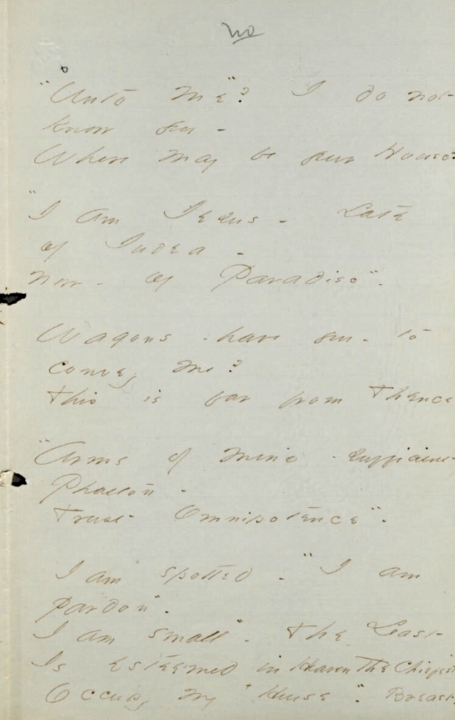 no
"Unto Me"? I do not
know you -
Where may be your House?
"I am Jesus - Late
of Judea -
Now - of Paradise".
Wagons - have you - to
convey me?
This is far from Thence
"Arms of mine - sufficient
Phaeton -
Trust Omnipotence".
I am spotted - "I am
Pardon".
I am small" - The Least
Is esteemed in Heaven The Chiefest
Occupy my "House" - Breast